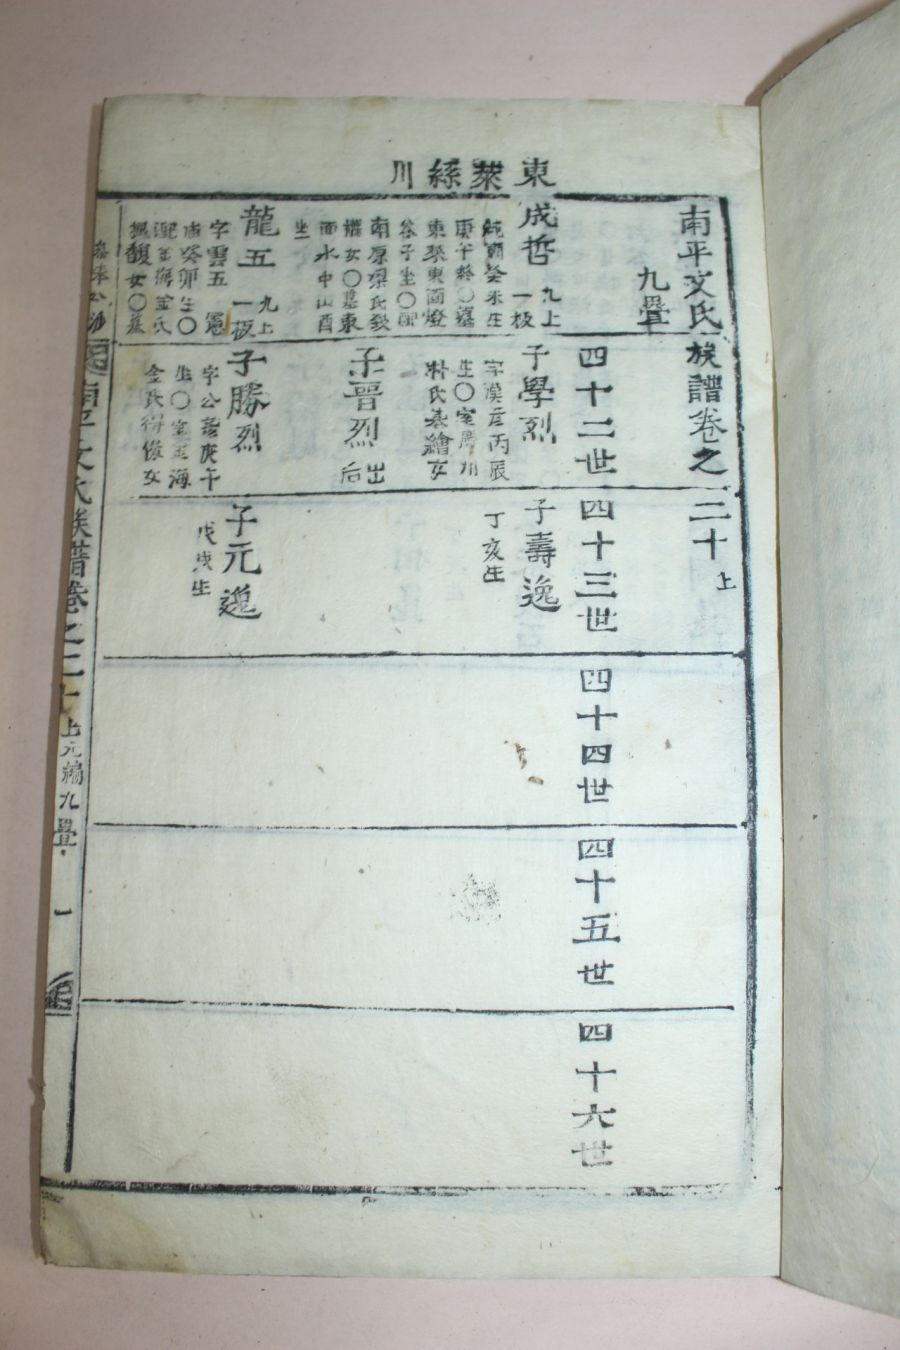 東萊絲川
南平文氏族譜卷之二十上
九疊
四十二世
四十三世
四十四世
四十五世
四十六世
成哲
九上
一板
純廟癸未生
庚午終〇墓
東萊東面燈
谷子坐〇配
南原梁氏致
女〇墓東
面水中山酉
坐
子學烈
字漢彦丙辰
生〇室
朴氏基繪女
子壽逸
丁亥生
子晋烈
出后
龍五
九上
一板
字雲五憲
廟癸卯生〇
配金海金氏
女〇墓
子勝烈
字公善庚午
生〇室金海
金氏得俊女
子元逸
戊戌生
南平文氏族譜卷之二十上元編九疊
一